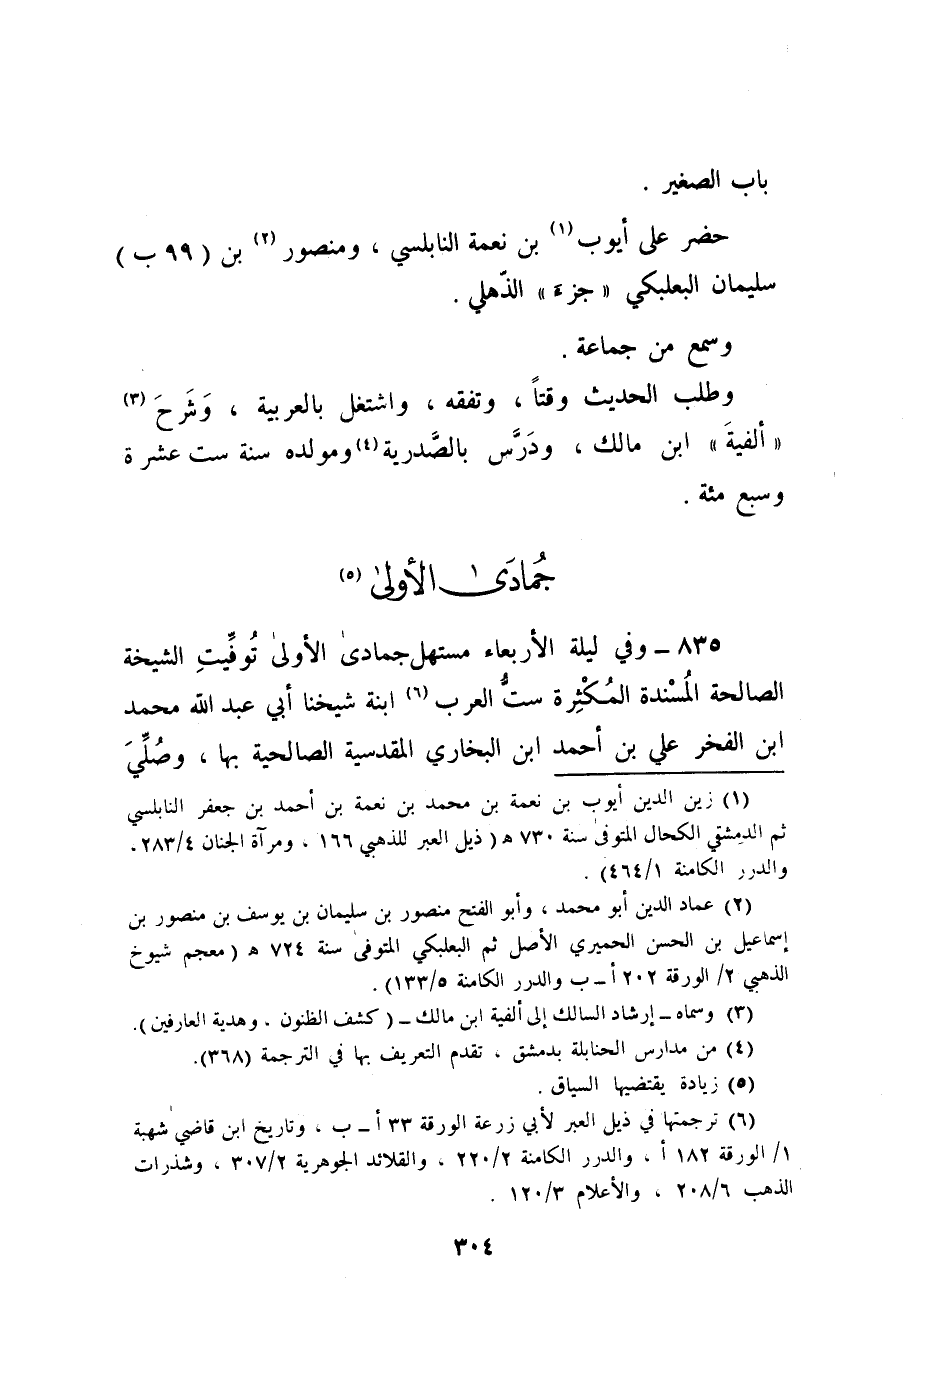 باب الصغير .
حضر على أيوب(١) بن نعمة النابلسي ، ومنصور(٢) بن ( ٩٩ ب )
سليمان البعلبكي « جزء » الذّهلي .
وسمع من جماعة .
وطلب الحديث وقتاً ، وتفقه ، واشتغل بالعربية ، وَشَرحَ (٣)
« ألفيةَ » ابن مالك ، ودَرَّس بالصَّدرية(٤) ومولده سنة ست عشرة
وسبع مئة .
جُمادَىٰ الأولىٰ (٥)
٨٣٥ ـ وفي ليلة الأربعاء مستهل جمادىٰ الأولىٰ تُوفِّيتِ الشيخة
الصالحة المُسْندة المُكْثِرة ستُّ العرب (٦) ابنة شيخنا أبي عبد الله محمد
ابن الفخر علي بن أحمد ابن البخاري المقدسية الصالحية بها ، وصُلِّيَ
(١) زين الدين أيوب بن نعمة بن محمد بن نعمة بن أحمد بن جعفر النابلسي
ثم الدمشقي الكحال المتوفىٰ سنة ٧٣٠ هـ ( ذيل العبر للذهبي ١٦٦ ، ومرآة الجنان ٢٨٣/٤ .
والدرر الكامنة ٤٦٤/١) .
(٢) عماد الدين أبو محمد ، وأبو الفتح منصور بن سليمان بن يوسف بن منصور بن
إسماعيل بن الحسن الحميري الأصل ثم البعلبكي المتوفىٰ سنة ٧٢٤ هـ ( معجم شيوخ
الذهبي ٢/ الورقة ٢٠٢ أ ـ ب والدرر الكامنة ١٣٣/٥) .
(٣) وسماه ـ إرشاد السالك إلى ألفية ابن مالك ـ ( كشف الظنون . وهدية العارفين ).
(٤) من مدارس الحنابلة بدمشق ، تقدم التعريف بها في الترجمة (٣٦٨).
(٥) زيادة يقتضيها السياق .
(٦) ترجمتها في ذيل العبر لأبي زرعة الورقة ٣٣ أ ـ ب ، وتاريخ ابن قاضي شهبة
١/ الورقة ١٨٢ أ ، والدرر الكامنة ٢٢٠/٢ ، والقلائد الجوهرية ٣٠٧/٢ ، وشذرات
الذهب ٢٠٨/٦ ، والأعلام ١٢٠/٣ .
٣٠٤